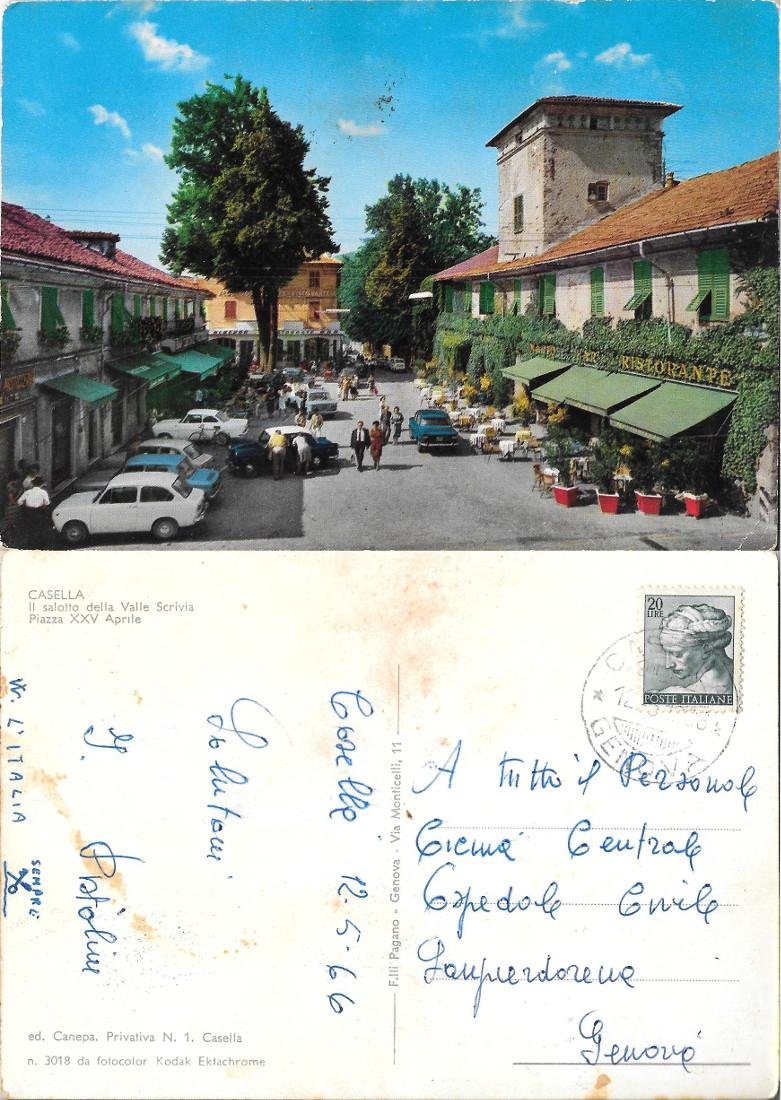 RISTORANTE
BAR RISTORANTE
CASELLA
Il salotto della Valle Scrivia
Piazza XXV Aprile
20
LIRE
POSTE ITALIANE
GENOVA
Casella 12-5-66
Salutoni
W. L'ITALIA
SEMPRE
F.lli Pagano - Genova - Via Monticelli, 11
A tutto il Personale
Cucina Centrale
Ospedale Civile
Sanpierdarena
Genova
ed. Canepa. Privativa N. 1. Casella
n. 3018 da fotocolor Kodak Ektachrome